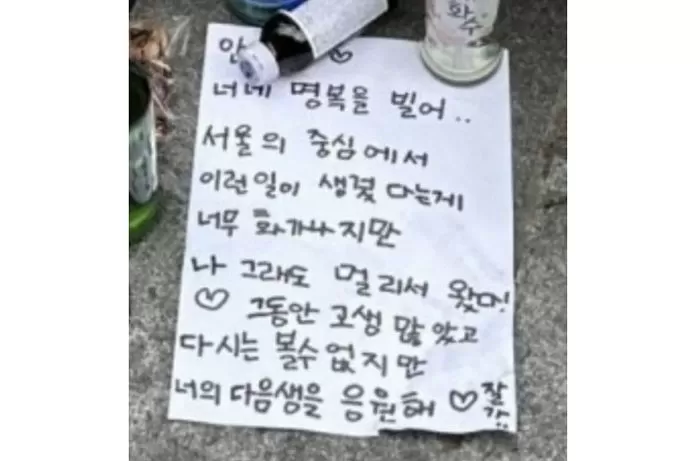 안 ♡
너네 명복을 빌어..
서울의 중심에서
이런일이 생겼 다는게
너무 화가나지만
나 그래도 멀리서 왔어!
♡ 그동안 고생 많았고
다시는 볼수 없지만
너의 다음생을 응원해 ♡ 잘가!!
화수